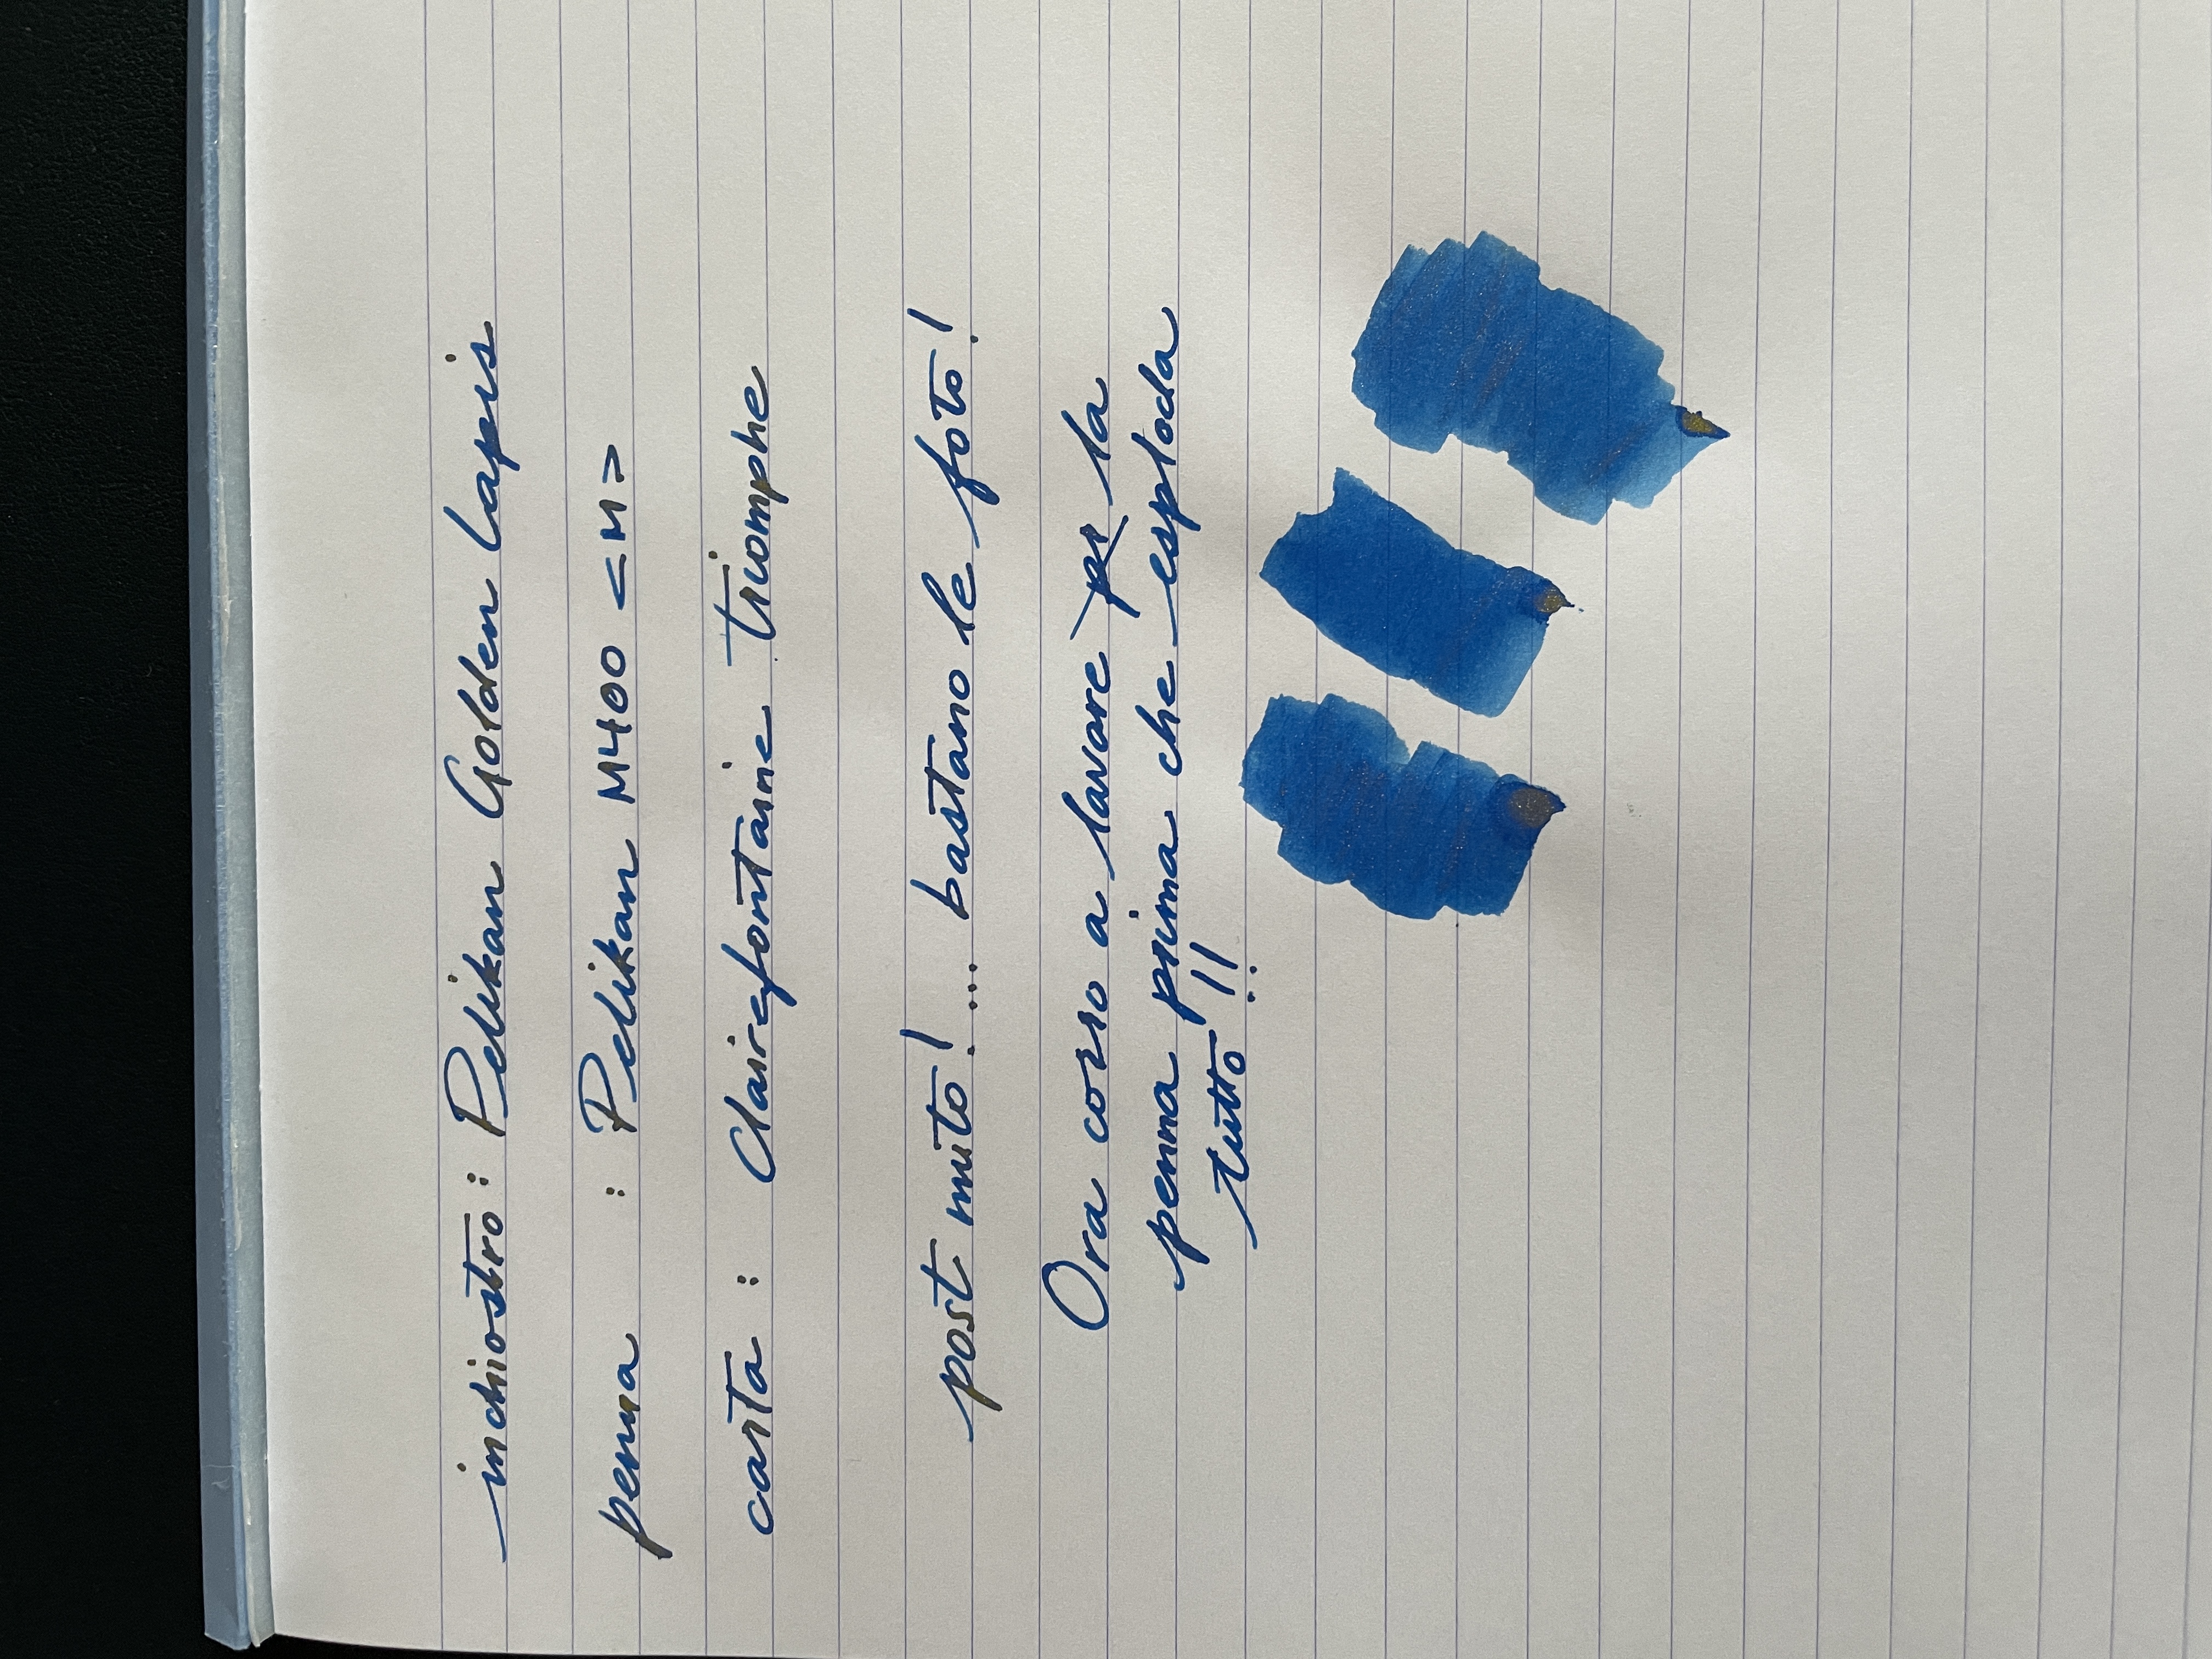 inchiostro: Pelikan Golden Lapis
penna : Pelikan M400 <M>
carta : Clairefontaine Triomphe
post muto! .... bastano le foto!
Ora corro a lavare la
penna prima che esploda
tutto!!